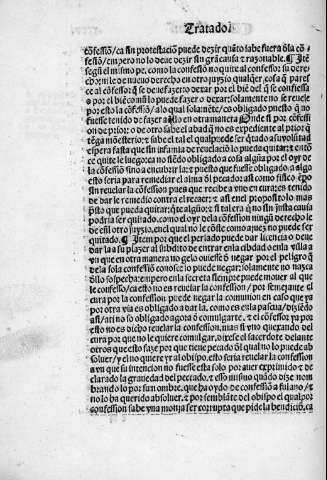 Tratado
cõfessiõ/ca sin protestaciõ puede dezir quãto sabe fuera dla cõ-
fessiõ/empero no lo deue dezir sin grã causa z razonable. ¶ Itẽ
segũ el mismo pe. como la confessiõ no quite al confessor su dere-
cho:ni le de nueuo derecho en otro juyzio qualqer. cosa q̃ paresce
ce al cõfessor q̃ se deue fazer o dexar por el biẽ del q̃ se confiessa
o por el biẽ comũ lo puede fazer o dexar:solamente no se reuele
por esto la cõfessiõ/a lo qual solamẽte es obligado puesto q̃ no
fuesse tenido de fazer allo en otra manera Onde si por cõfessi-
on de prior:o de otro sabe el abad q̃ no es expediente al prior q̃
tẽga mõesterio:z sabe el tal el qual pue: de ser q̃tado a su volũtad
espera fasta que sin infamia de reuelaciõ lo pueda quitar:z entõ-
ce quite le luego:ca no siẽdo obligado a cosa algũa por el oyr de
la cõfessiõ sino a encubrir la: z puesto que fuesse obligado a algo
esto seria para remediar el alma dl pecador:assi como fisico empo
sin reuelar la cõfession pues que recibe a vno en cura:es tenido
de dar le remedio contra el recaer: z assi en el proposito lo mas
presto que pueda quitar: quite algũo: z si tal era q̃ no sin justa causa
podria ser quitado. como dela cõfession ningũ derecho le
de en sil otro juyzio. en el qual no le cõste como aijuez no puede ser
quitado. ¶ Item por que el perlado puede dar licencia o deue
dar la a su plazer al subdito de entrar en la cibdad o enla villa a
vn que en otra manera no gelo ouiesse õ negar por el peligro q̃
dela sola cõfessiõ conosce lo puede negar: solamente no nazca
dello sospecha:empero en la secreta siempre puede mouer al que
se confiessa/ca esto no es reuelar la confession / por semejante el
cura por la confession puede negar la comunion en caso que ya
por otra via es obligado a dar la. como es en la pascua/diziẽdo
assi/ati no so obligado agora õ comulgarte. z el cõfessor ya por
esto no es dicho reuelar la confession. mas si vno quexando del
cura por que no le quiere comulgar. dixesse el sacerdote delante
otros que esto faze por que tiene pecado dl qual no lo puede ab-
soluer/y el no quiere yr al obispo. esto seria reuelar la confession
a vn que su intencion no fuesse esta solo por auer exprimido z de-
clarado la graueldad del pecado. z esso mismo quãdo dize nom
brando lo por su nombre. que ha oydo de confessiõ a fulano/z
no lo ha querido absoluer. z por semblãte del obispo el qual por
confession sabe vna monja ser corrupta que pide la bendiciõ. ca